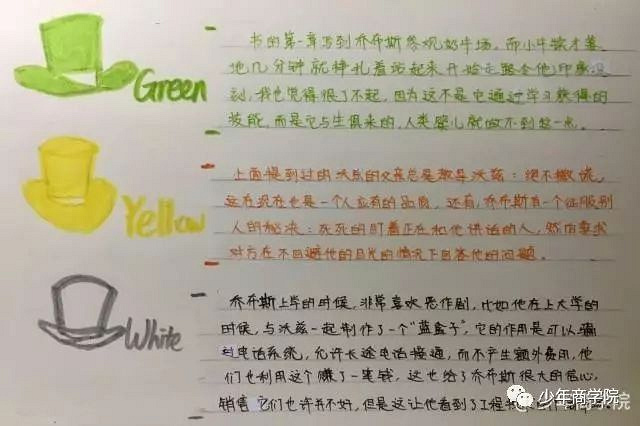 Green
书的第一章写到乔布斯参观奶牛场，而小牛犊才落
地几分钟就挣扎着站起来开始走路令他印象深
刻，我也觉得很了不起，因为这不是它通过学习获得的
技能，而是它与生俱来的，人类婴儿就做不到这一点。
Yellow
上面提到过的沃兹的父亲总是教导沃兹：绝不撒谎，
这在现在也是一个人应有的品质，还有，乔布斯有一个征服别
人的秘决：死死的盯着正在和他讲话的人，然后要求
对方在不回避他的目光的情况下回答他的问题。
White
乔布斯上学的时候，非常喜欢恶作剧，比如他在上大学的
时候，与沃兹一起制作了一个“蓝盒子”，它的作用是可以骗
过电话系统，允许长途电话接通，而不产生额外费用，他
们也利用这个赚了一笔钱，这也给了乔布斯很大的信心，
销售它们也许并不好，但是这让他看到了工程
少年商学院